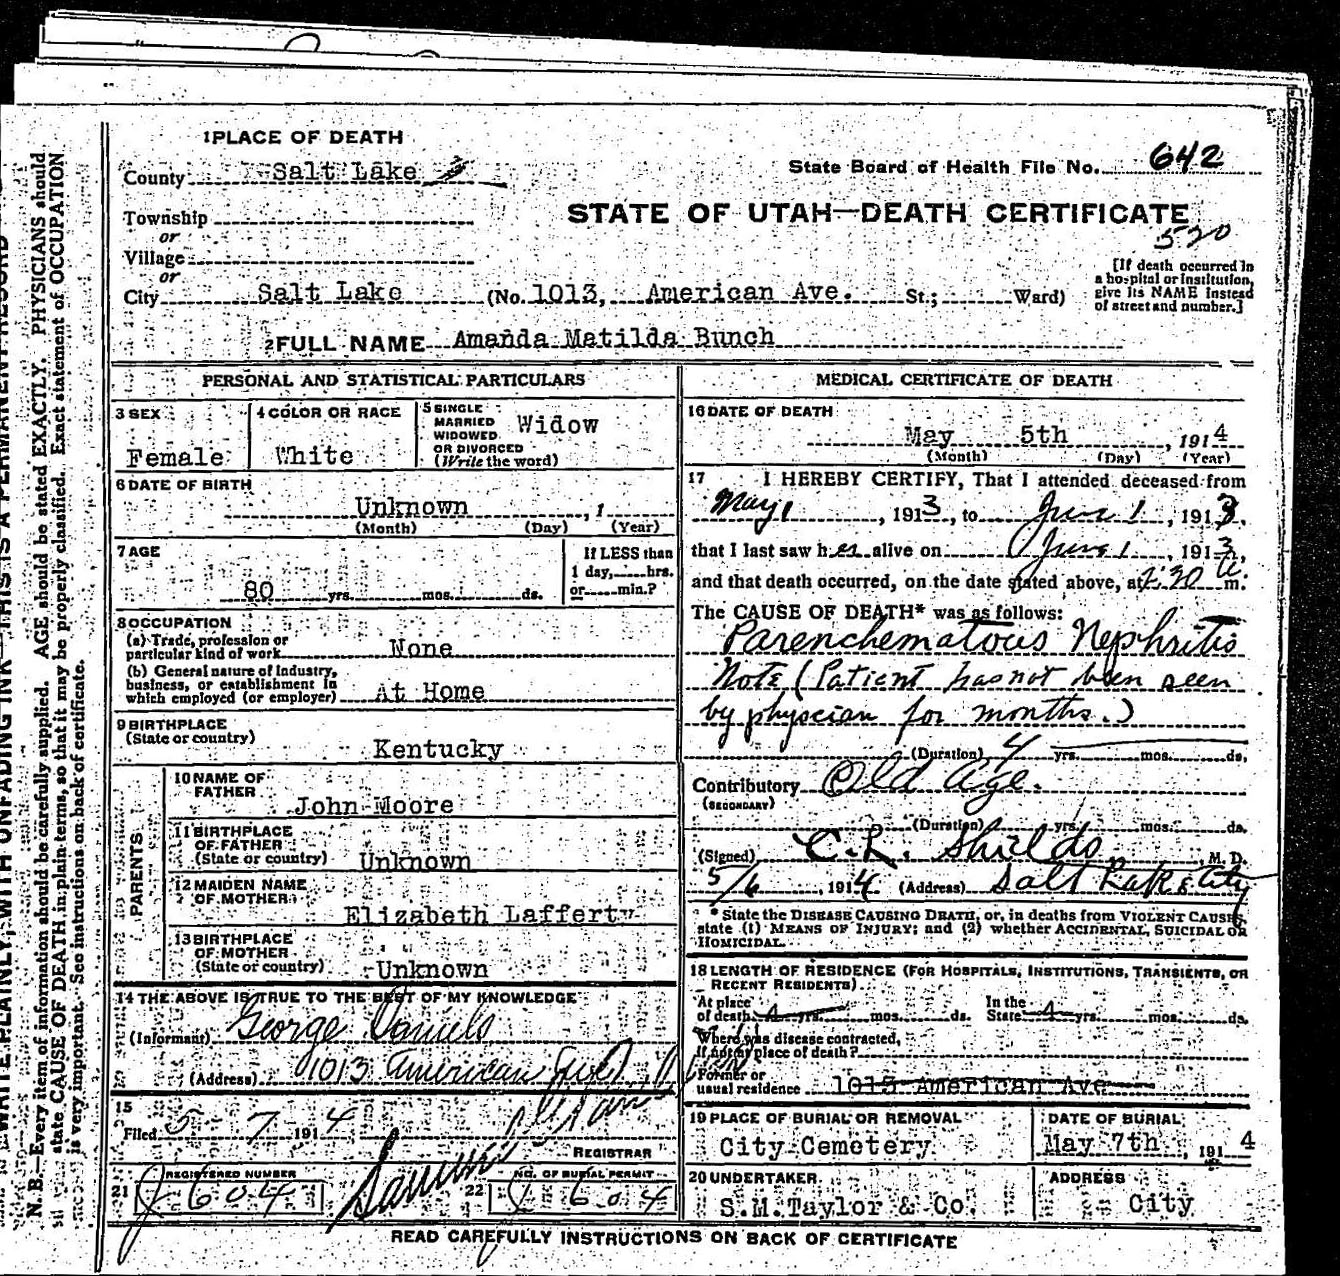 1 PLACE OF DEATH
County Salt Lake
State Board of Health File No. 642
Township
or
Village
or
City Salt Lake (No. 1013, American Ave. St.; Ward)
STATE OF UTAH—DEATH CERTIFICATE
520
[If death occurred in
a hospital or institution,
give its NAME instead
of street and number.]
2 FULL NAME Amanda Matilda Bunch
PERSONAL AND STATISTICAL PARTICULARS
3 SEX
Female
4 COLOR OR RACE
White
5 SINGLE
MARRIED
WIDOWED
OR DIVORCED
(Write the word)
Widow
6 DATE OF BIRTH
Unknown , 1
(Month) (Day) (Year)
7 AGE
80 yrs. mos. ds.
If LESS than
1 day, hrs.
or min.?
8 OCCUPATION
(a) Trade, profession or
particular kind of work None
(b) General nature of industry,
business, or establishment in
which employed (or employer) At Home
9 BIRTHPLACE
(State or country)
Kentucky
PARENTS
10 NAME OF
FATHER
John Moore
11 BIRTHPLACE
OF FATHER
(State or country) Unknown
12 MAIDEN NAME
OF MOTHER
Elizabeth Lafferty
13 BIRTHPLACE
OF MOTHER
(State or country) Unknown
14 THE ABOVE IS TRUE TO THE BEST OF MY KNOWLEDGE
(Informant) George Daniels
(Address) 1013 American
15
Filed 5-7 1914
REGISTRAR
21 REGISTERED NUMBER
J 604
22 NO. OF BURIAL PERMIT
J 604
MEDICAL CERTIFICATE OF DEATH
16 DATE OF DEATH
May 5th , 1914
(Month) (Day) (Year)
17 I HEREBY CERTIFY, That I attended deceased from
May 1 , 1913, to June 1 , 1913,
that I last saw her alive on June 1 , 1913,
and that death occurred, on the date stated above, at 30 a m.
The CAUSE OF DEATH* was as follows:
Parenchematous Nephritis
Note (Patient has not been seen
by physcian for months.)
(Duration) 4 yrs. mos. ds.
Contributory Old Age.
(SECONDARY)
(Duration) yrs. mos. ds.
(Signed) C. L. Shields , M. D.
5/6 , 1914 (Address) Salt Lake City
* State the DISEASE CAUSING DEATH, or, in deaths from VIOLENT CAUSES,
state (1) MEANS OF INJURY; and (2) whether ACCIDENTAL, SUICIDAL OR
HOMICIDAL.
18 LENGTH OF RESIDENCE (FOR HOSPITALS, INSTITUTIONS, TRANSIENTS, OR
RECENT RESIDENTS)
At place
of death 4 yrs. mos. ds.
In the
State 4 yrs. mos. ds.
Where was disease contracted,
If not at place of death?
Former or
usual residence 1013 American Ave
19 PLACE OF BURIAL OR REMOVAL
City Cemetery
DATE OF BURIAL
May 7th , 1914
20 UNDERTAKER
S.M.Taylor & Co.
ADDRESS
City
READ CAREFULLY INSTRUCTIONS ON BACK OF CERTIFICATE
WRITE PLAINLY, WITH UNFADING INK—THIS IS A PERMANENT RECORD
N. B.—Every item of information should be carefully supplied. AGE should be stated EXACTLY. PHYSICIANS should
state CAUSE OF DEATH in plain terms, so that it may be properly classified. Exact statement of OCCUPATION
is very important. See instructions on back of certificate.